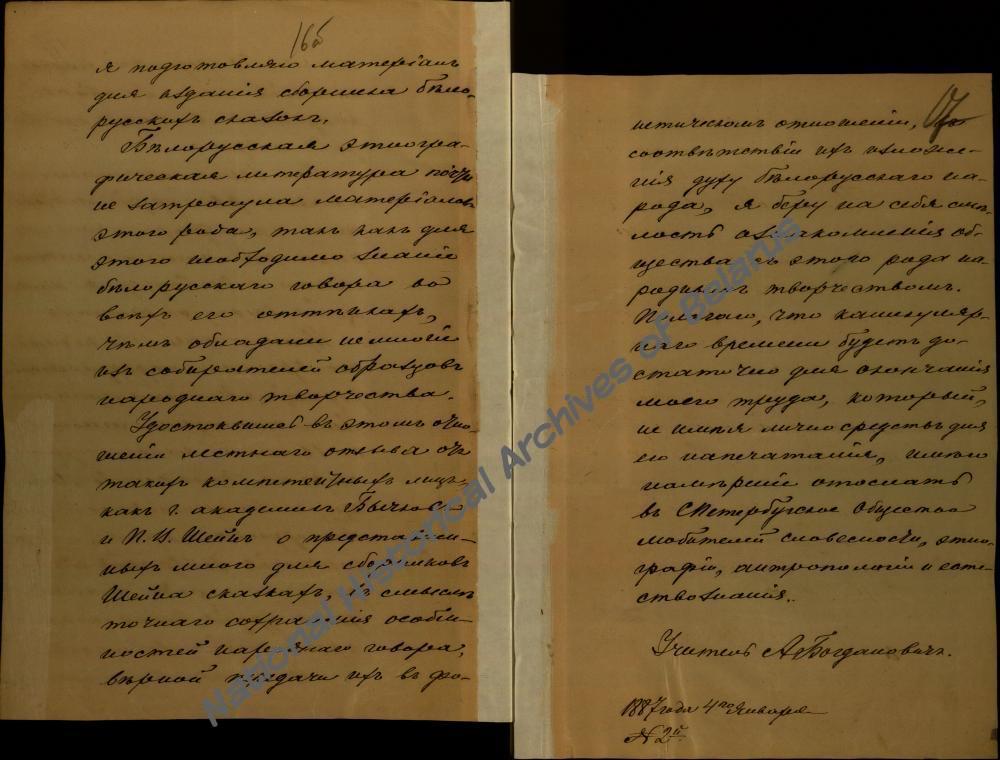 16об
я подготовляю матеріалъ
для изданія сборника бѣло-
русскихъ сказокъ.
Бѣлорусская этногра-
фическая литература почти
не затронула матеріаловъ
этого рода, такъ какъ для
этого необходимо знаніе
бѣлорусскаго говора во
всѣхъ его оттѣнкахъ,
чѣмъ обладали немногіе
изъ собирателей образцовъ
народнаго творчества.
Удостоившись въ этомъ отно-
шеніи лестнаго отзыва отъ
такихъ компетентныхъ лицъ,
какъ г. академикъ Бычковъ
и П. В. Шейнъ о представлен-
ныхъ мною для сборниковъ
Шейна сказкахъ, въ смыслѣ
точнаго сохраненія особен-
ностей народнаго говора,
вѣрной передачи ихъ въ фо-
17
нетическомъ отношеніи,
соотвѣтствіи ихъ изложе-
нія духу бѣлорусскаго на-
рода, я беру на себя смѣ-
лость ознакомленія об-
щества съ этого рода на-
роднымъ творчествомъ.
Полагаю, что каникуляр-
наго времени будетъ до-
статочно для окончанія
моего труда, который,
не имѣя лично средствъ для
его напечатанія, имѣю
намѣреніе отослать
въ СПетербугское Общество
любителей словесности, этно-
графіи, антропологіи и есте-
ствознанія.
Учитель А. Богдановичъ.
1887 года 4го Января
№ 2й.
National Historical Archives of Belarus